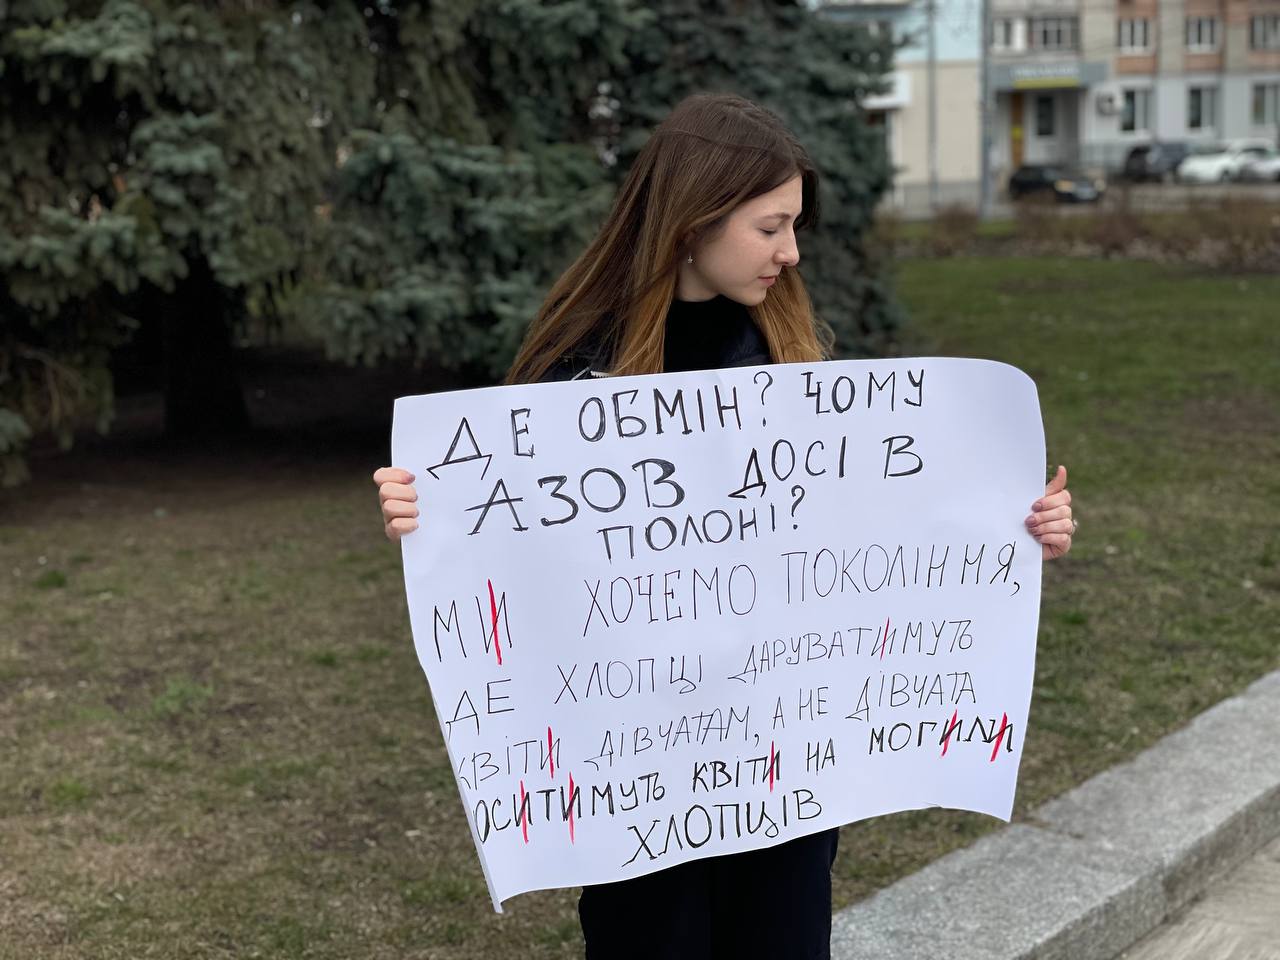 ДЕ ОБМІН? ЧОМУ
АЗОВ ДОСІ В
ПОЛОНІ?
МИ ХОЧЕМО ПОКОЛІННЯ,
ДЕ ХЛОПЦІ ДАРУВАТИМУТЬ
КВІТИ ДІВЧАТАМ, А НЕ ДІВЧАТА
НОСИТИМУТЬ КВІТИ НА МОГИЛИ
ХЛОПЦІВ